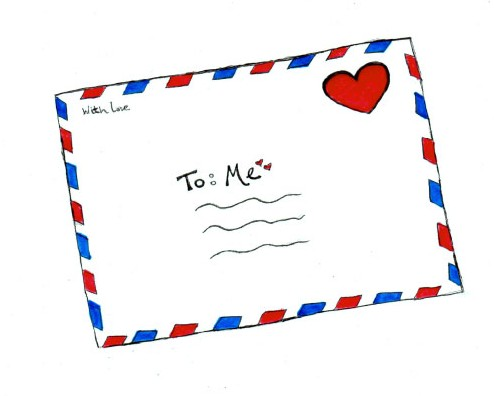 With Love
To: Me